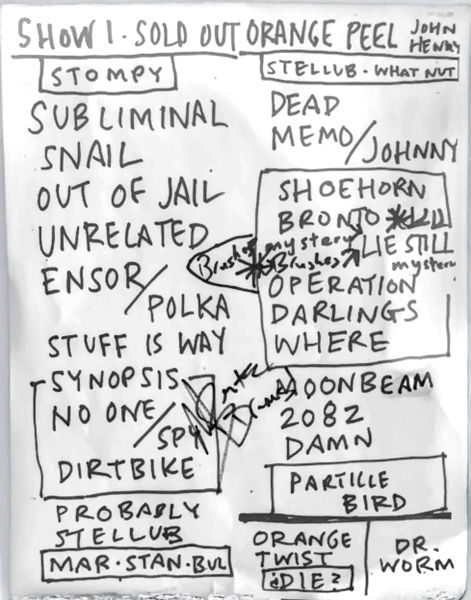 SHOW 1 · SOLD OUT ORANGE PEEL JOHN HENRY
STOMPY
SUBLIMINAL
SNAIL
OUT OF JAIL
UNRELATED
ENSOR/
POLKA
STUFF IS WAY
SYNOPSIS
NO ONE/
SPY
DIRTBIKE
PROBABLY
STELLUB
MAR·STAN·BUL
STELLUB · WHAT NUT
DEAD
MEMO/JOHNNY
SHOEHORN
BRONTO
Brushes mystery LIE STILL
*Brushes mystery
OPERATION
DARLINGS
WHERE
MOONBEAM
2082
DAMN
PARTICLE
BIRD
ORANGE
TWIST
¿DIE?
DR.
WORM